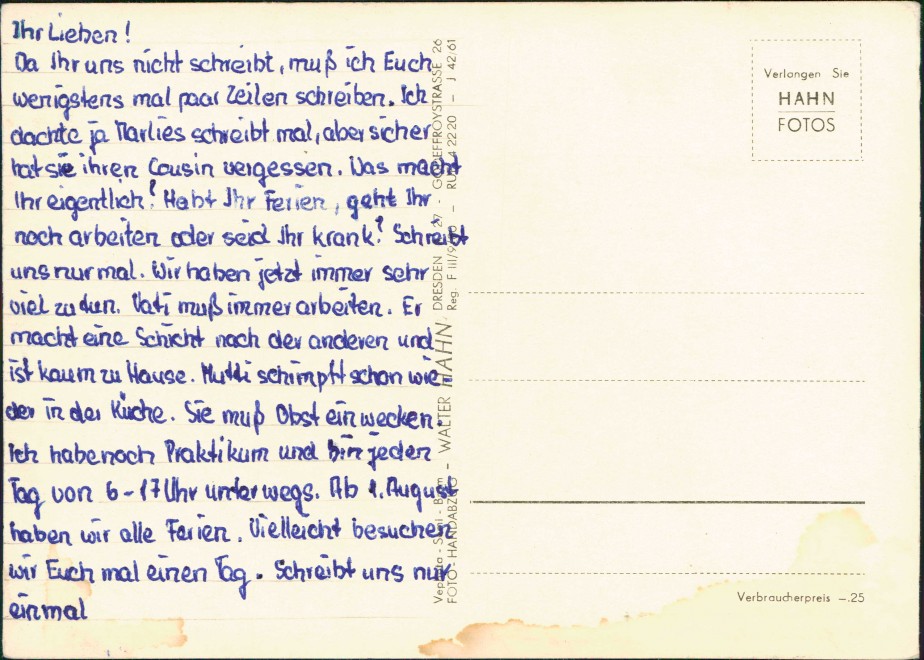 Ihr Lieben!
Da Ihr uns nicht schreibt, muß ich Euch
wenigstens mal paar Zeilen schreiben. Ich
dachte ja Marlies schreibt mal, aber sicher
hat sie ihren Cousin vergessen. Was macht
Ihr eigentlich? Habt Ihr Ferien, geht Ihr
noch arbeiten oder seid Ihr krank? Schreibt
uns nur mal. Wir haben jetzt immer sehr
viel zu tun. Vati muß immer arbeiten. Er
macht eine Schicht nach der anderen und
ist kaum zu Hause. Mutti schimpft schon wie
der in der Küche. Sie muß Obst einwecken.
Ich habe noch Praktikum und bin jeden
Tag von 6-17 Uhr unterwegs. Ab 1. August
haben wir alle Ferien. Vielleicht besuchen
wir Euch mal einen Tag. Schreibt uns nur
einmal
FOTO-HANDABZUG - WALTER HAHN DRESDEN 27
26
RUF 4 2220 - J 42/61
Reg. F III/9/
Verlangen Sie
HAHN
FOTOS
Verbraucherpreis -.25